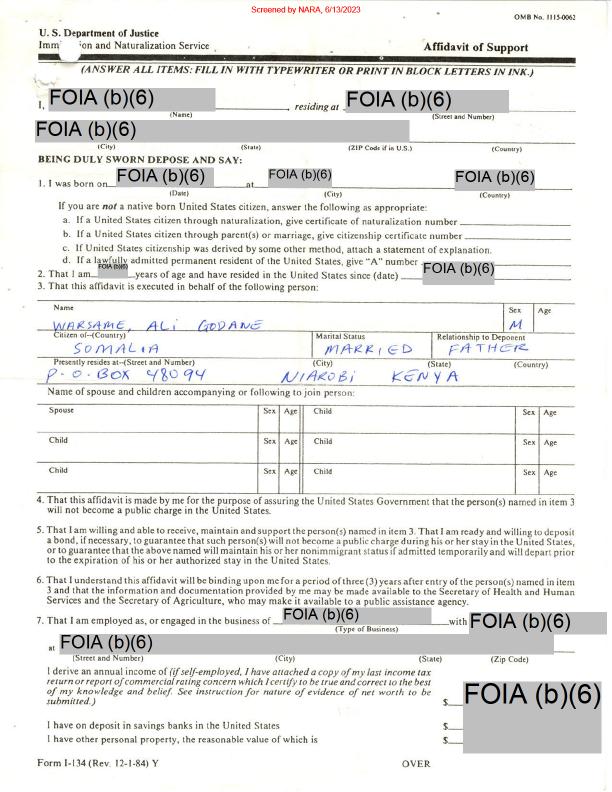 Screened by NARA, 6/13/2023
OMB No. 1115-0062
U. S. Department of Justice
Imm ion and Naturalization Service Affidavit of Support
(ANSWER ALL ITEMS: FILL IN WITH TYPEWRITER OR PRINT IN BLOCK LETTERS IN INK.)
I, FOIA (b)(6) , residing at FOIA (b)(6)
(Name) (Street and Number)
FOIA (b)(6)
(City) (State) (ZIP Code if in U.S.) (Country)
BEING DULY SWORN DEPOSE AND SAY:
1. I was born on FOIA (b)(6) at FOIA (b)(6) FOIA (b)(6)
(Date) (City) (Country)
If you are not a native born United States citizen, answer the following as appropriate:
a. If a United States citizen through naturalization, give certificate of naturalization number
b. If a United States citizen through parent(s) or marriage, give citizenship certificate number
c. If United States citizenship was derived by some other method, attach a statement of explanation.
d. If a lawfully admitted permanent resident of the United States, give "A" number
2. That I am FOIA (b)(6) years of age and have resided in the United States since (date) FOIA (b)(6)
3. That this affidavit is executed in behalf of the following person:
Name Sex Age
WARSAME, ALI GODANE M
Citizen of--(Country) Marital Status Relationship to Deponent
SOMALIA MARRIED FATHER
Presently resides at--(Street and Number) (City) (State) (Country)
P.O.BOX 48094 NIAROBI KENYA
Name of spouse and children accompanying or following to join person:
Spouse Sex Age Child Sex Age
Child Sex Age Child Sex Age
Child Sex Age Child Sex Age
4. That this affidavit is made by me for the purpose of assuring the United States Government that the person(s) named in item 3
will not become a public charge in the United States.
5. That I am willing and able to receive, maintain and support the person(s) named in item 3. That I am ready and willing to deposit
a bond, if necessary, to guarantee that such person(s) will not become a public charge during his or her stay in the United States,
or to guarantee that the above named will maintain his or her nonimmigrant status if admitted temporarily and will depart prior
to the expiration of his or her authorized stay in the United States.
6. That I understand this affidavit will be binding upon me for a period of three (3) years after entry of the person(s) named in item
3 and that the information and documentation provided by me may be made available to the Secretary of Health and Human
Services and the Secretary of Agriculture, who may make it available to a public assistance agency.
7. That I am employed as, or engaged in the business of FOIA (b)(6) with FOIA (b)(6)
(Type of Business)
at FOIA (b)(6)
(Street and Number) (City) (State) (Zip Code)
I derive an annual income of (if self-employed, I have attached a copy of my last income tax
return or report of commercial rating concern which I certify to be true and correct to the best
of my knowledge and belief. See instruction for nature of evidence of net worth to be
submitted.) $ FOIA (b)(6)
I have on deposit in savings banks in the United States $
I have other personal property, the reasonable value of which is $
Form I-134 (Rev. 12-1-84) Y OVER